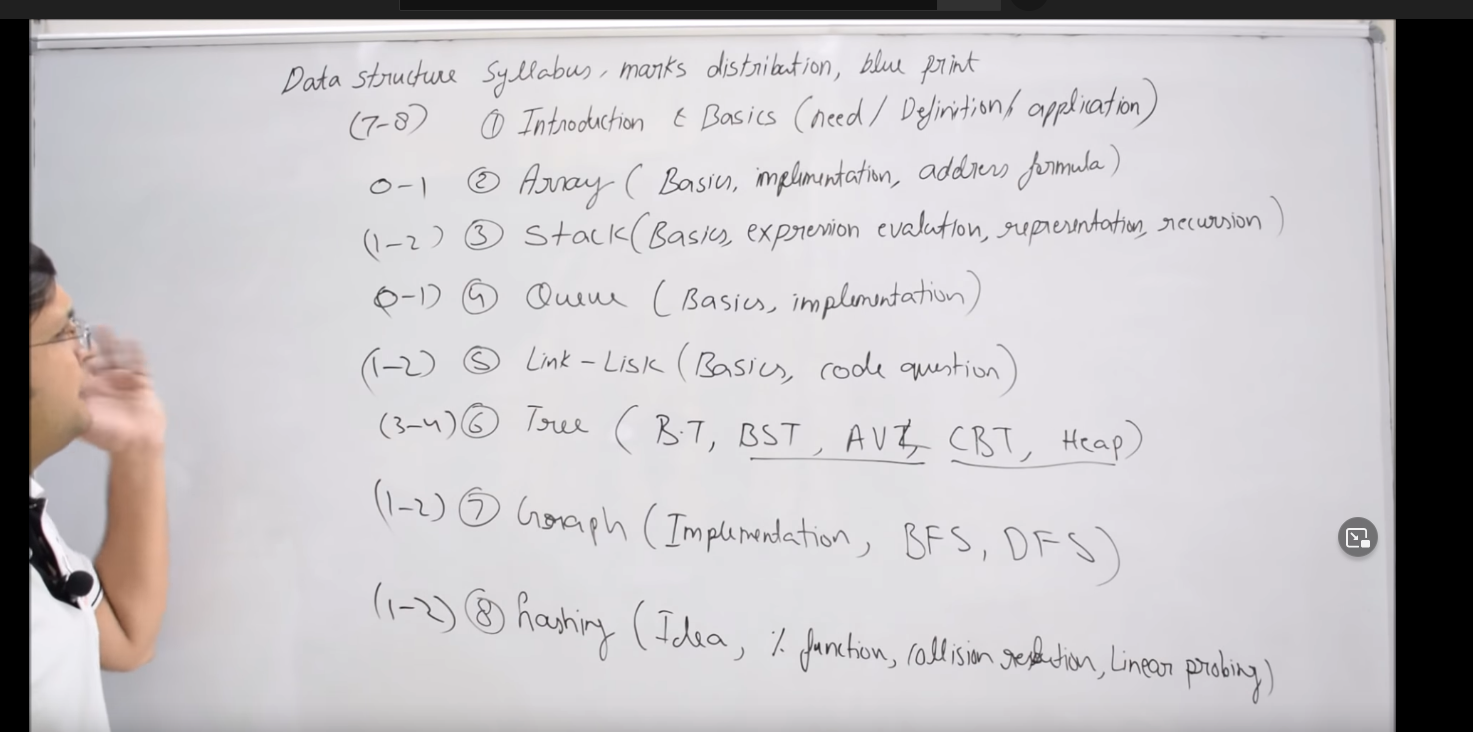 Data structure Syllabus, marks distribution, blue print
(7-8) ① Introduction & Basics (need / Definition / application)
0-1 ② Array ( Basics, implementation, address formula)
(1-2) ③ Stack (Basics, expression evalution, representation, recursion)
0-1) ④ Queue (Basics, implementation)
(1-2) ⑤ Link-List (Basics, code question)
(3-4) ⑥ Tree ( B.T, BST, AVL, CBT, Heap)
(1-2) ⑦ Graph (Implementation, BFS, DFS)
(1-2) ⑧ hashing (Idea, % function, collision resolution, Linear probing)